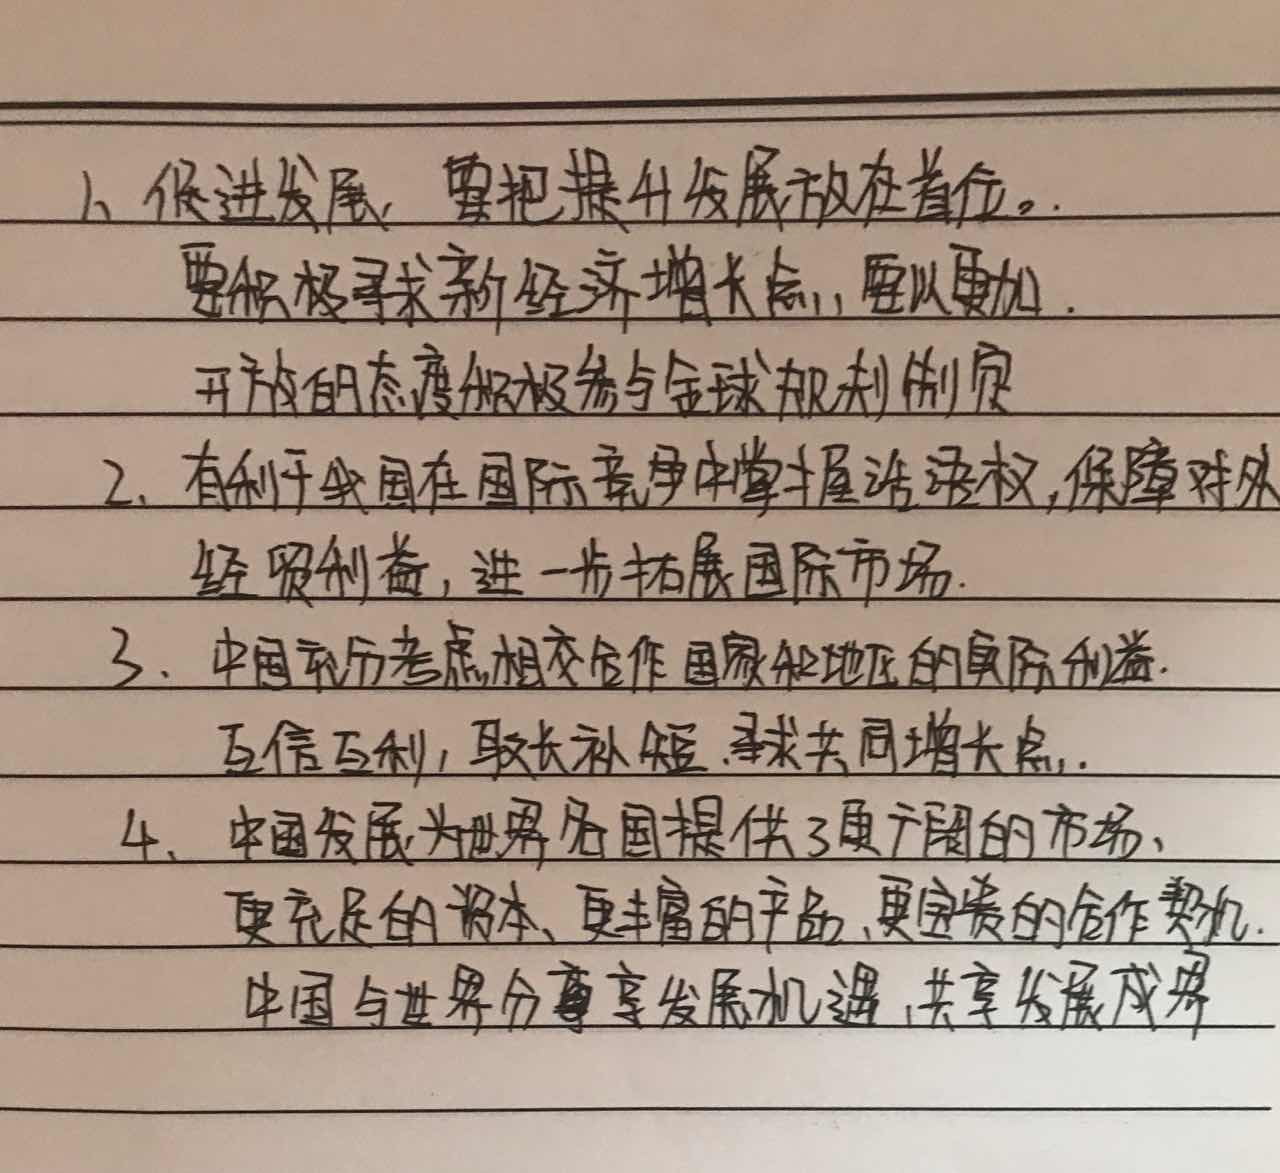 1、促进发展,要把提升发展放在首位。
要积极寻求新经济增长点,要以更加
开放的态度积极参与全球规则制定
2、有利于我国在国际竞争中掌握话语权,保障对外
经贸利益,进一步拓展国际市场.
3、中国充分考虑相交合作国家和地区的实际利益.
互信互利,取长补短.寻求共同增长点.
4、中国发展为世界各国提供了更广阔的市场、
更充足的资本、更丰富的产品、更宝贵的合作契机.
中国与世界分享发展机遇、共享发展成界